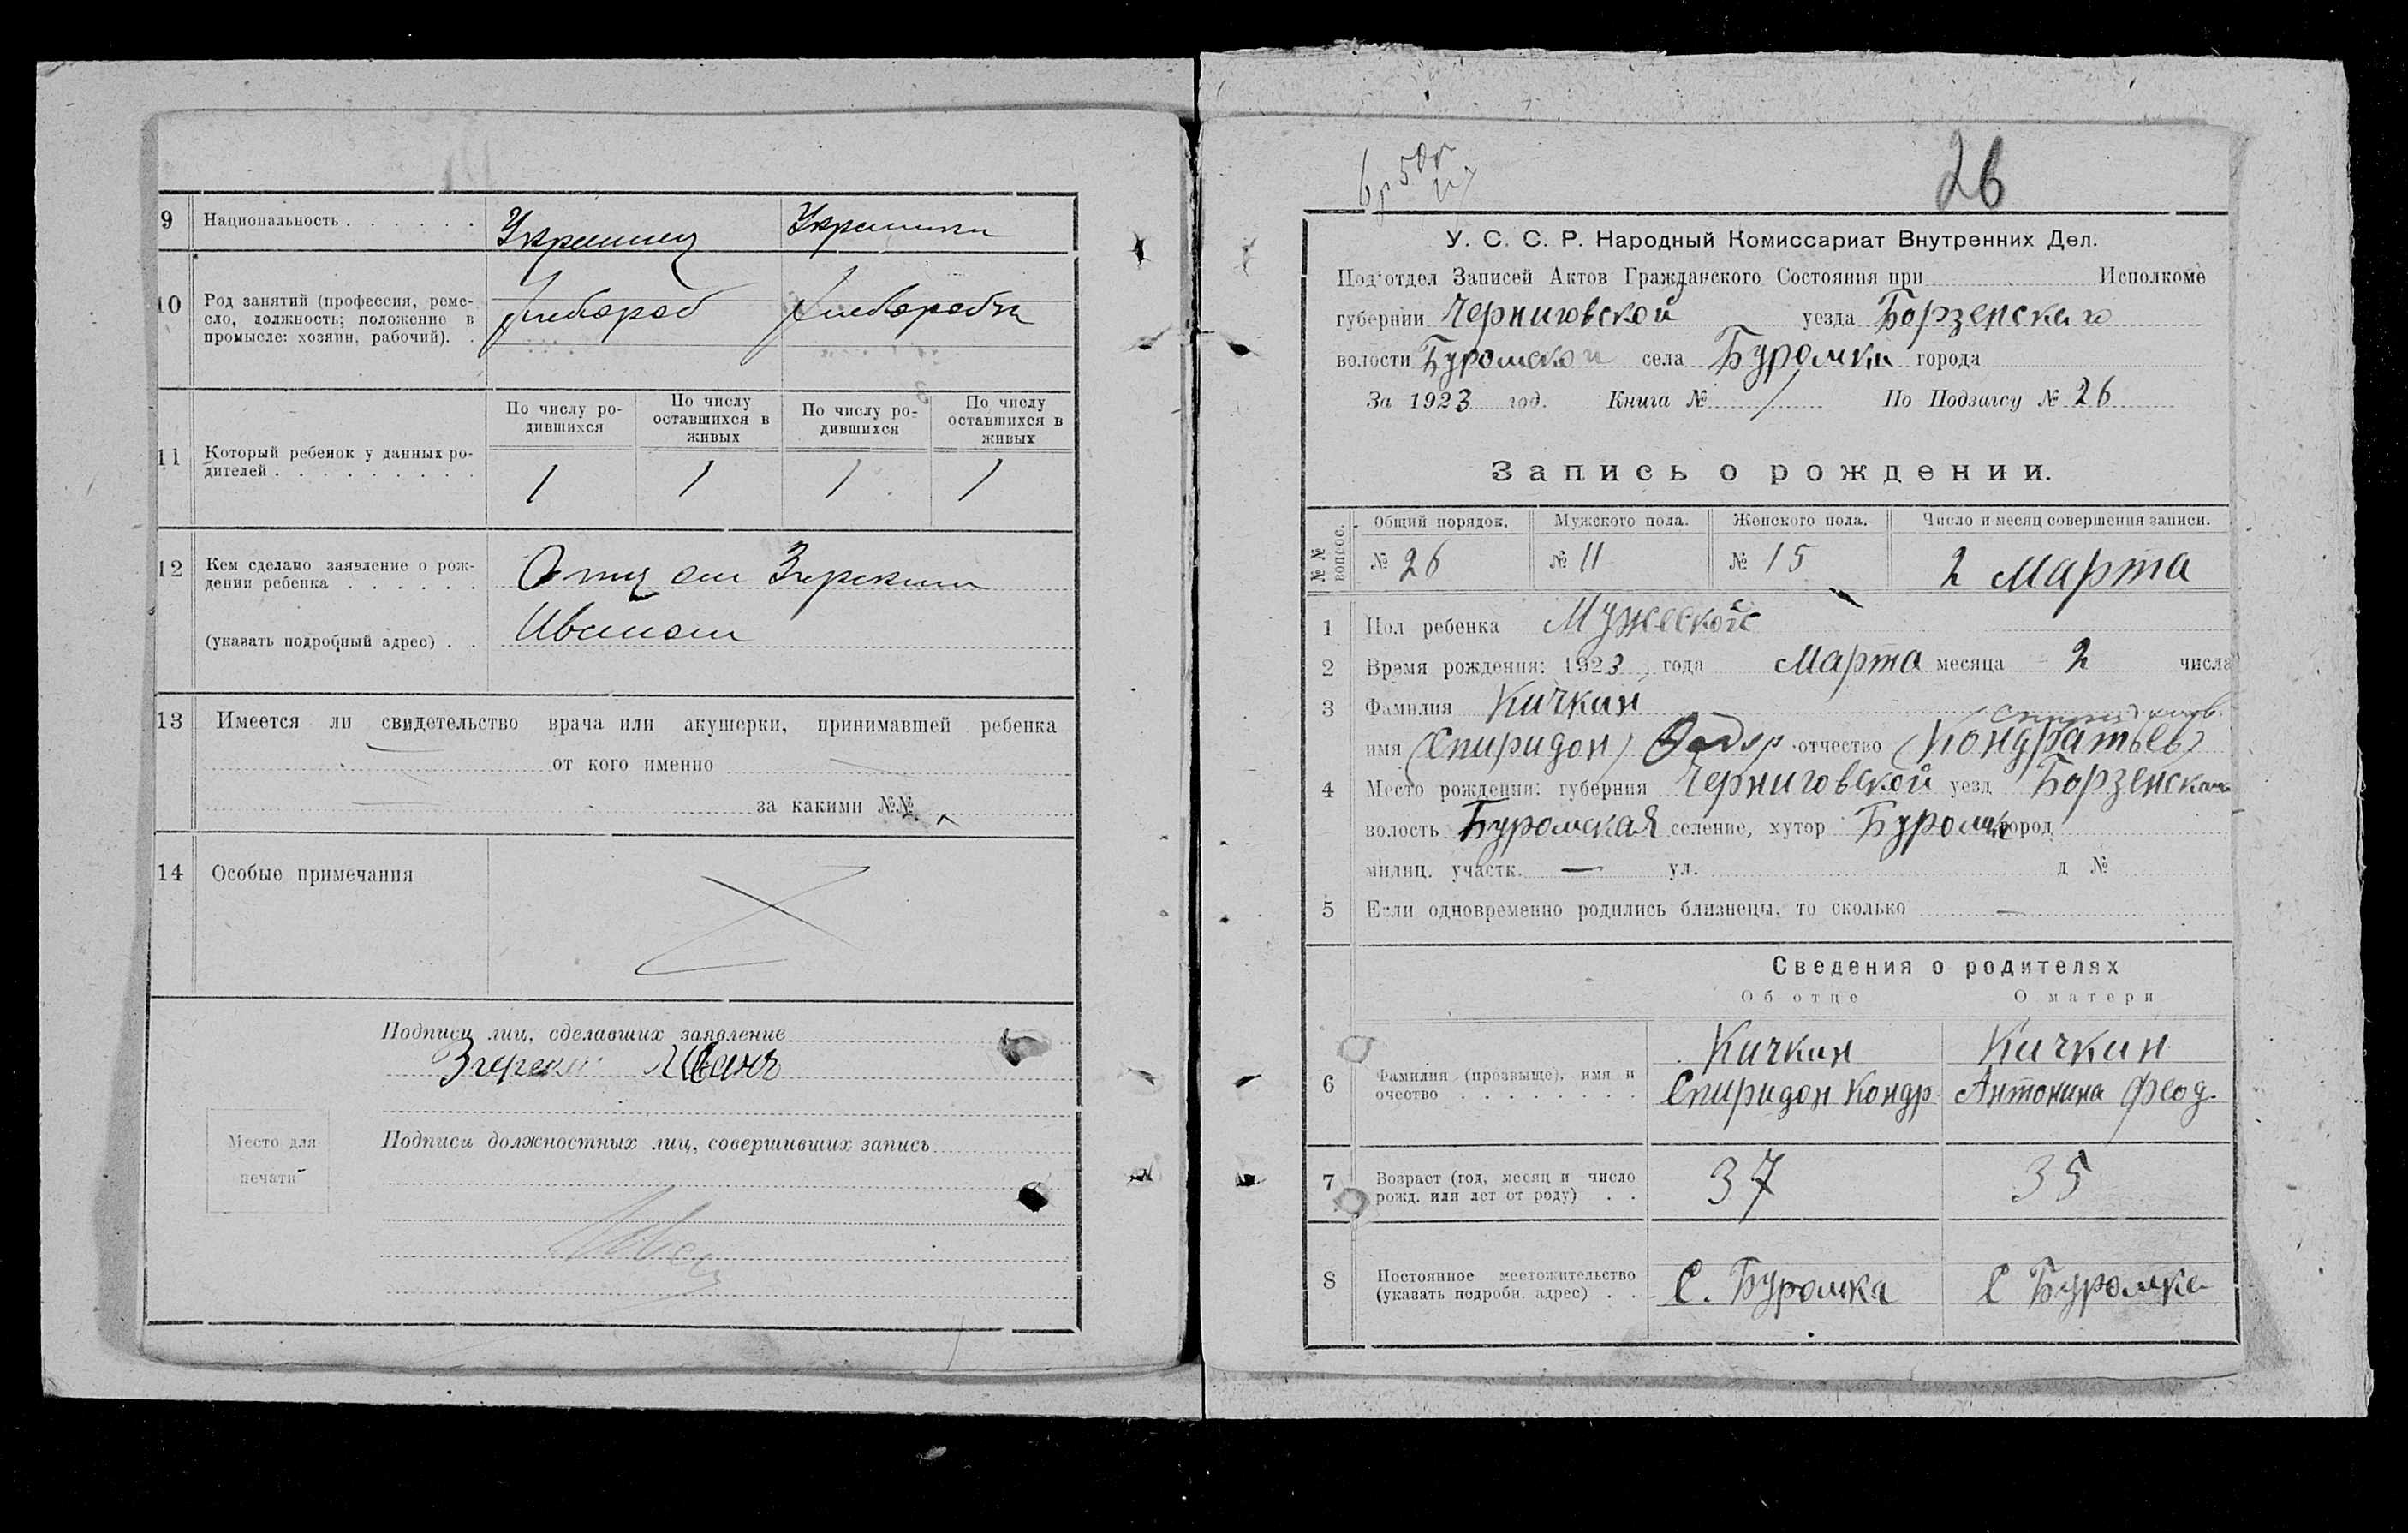 9 Национальность . . . . . . Украинец Украинка
10 Род занятий (профессия, реме-
сло, должность; положение в
промысле: хозяин, рабочий). . Хлебороб Хлеборобка
11 Который ребенок у данных ро-
дителей . . . . . . . . .
По числу ро-
дившихся
По числу
оставшихся в
живых
По числу ро-
дившихся
По числу
оставшихся в
живых
1 1 1 1
12 Кем сделано заявление о рож-
дении ребенка . . . . . .
(указать подробный адрес) . .
Иваном
13 Имеется ли свидетельство врача или акушерки, принимавшей ребенка
от кого именно
за какими №№
14 Особые примечания
Подписи лиц, сделавших заявление
Иванъ
Место для
печати
Подписи должностных лиц, совершивших запись
26
У. С. С. Р. Народный Комиссариат Внутренних Дел.
Подотдел Записей Актов Гражданского Состояния при Исполкоме
губернии Черниговской уезда Борзенского
волости Буромской села Буромки города
За 1923 год. Книга № 1 По Подзагсу № 26
Запись о рождении.
№№ вопрос.
Общий порядок. Мужского пола. Женского пола. Число и месяц совершения записи.
№ 26 № 11 № 15 2 Марта
1 Пол ребенка Мужеской
2 Время рождения: 1923 года Марта месяца 2 числа
3 Фамилия Кичкин
Спиридонов.
имя (Спиридон) Федор отчество (Кондратьев)
4 Место рождения: губерния Черниговской уезд Борзенского
волость Буромская селение, хутор Буромка город
милиц. участк. — ул. д №
5 Если одновременно родились близнецы, то сколько —
Сведения о родителях
Об отце О матери
6 Фамилия (прозвыще), имя и
очество . . . . . . . .
Кичкин Кичкин
Спиридон Кондр Антонина Феод.
7 Возраст (год, месяц и число
рожд. или лет от роду) . . 37 35
8 Постоянное местожительство
(указать подробн. адрес) . . С. Буромка С Буромка